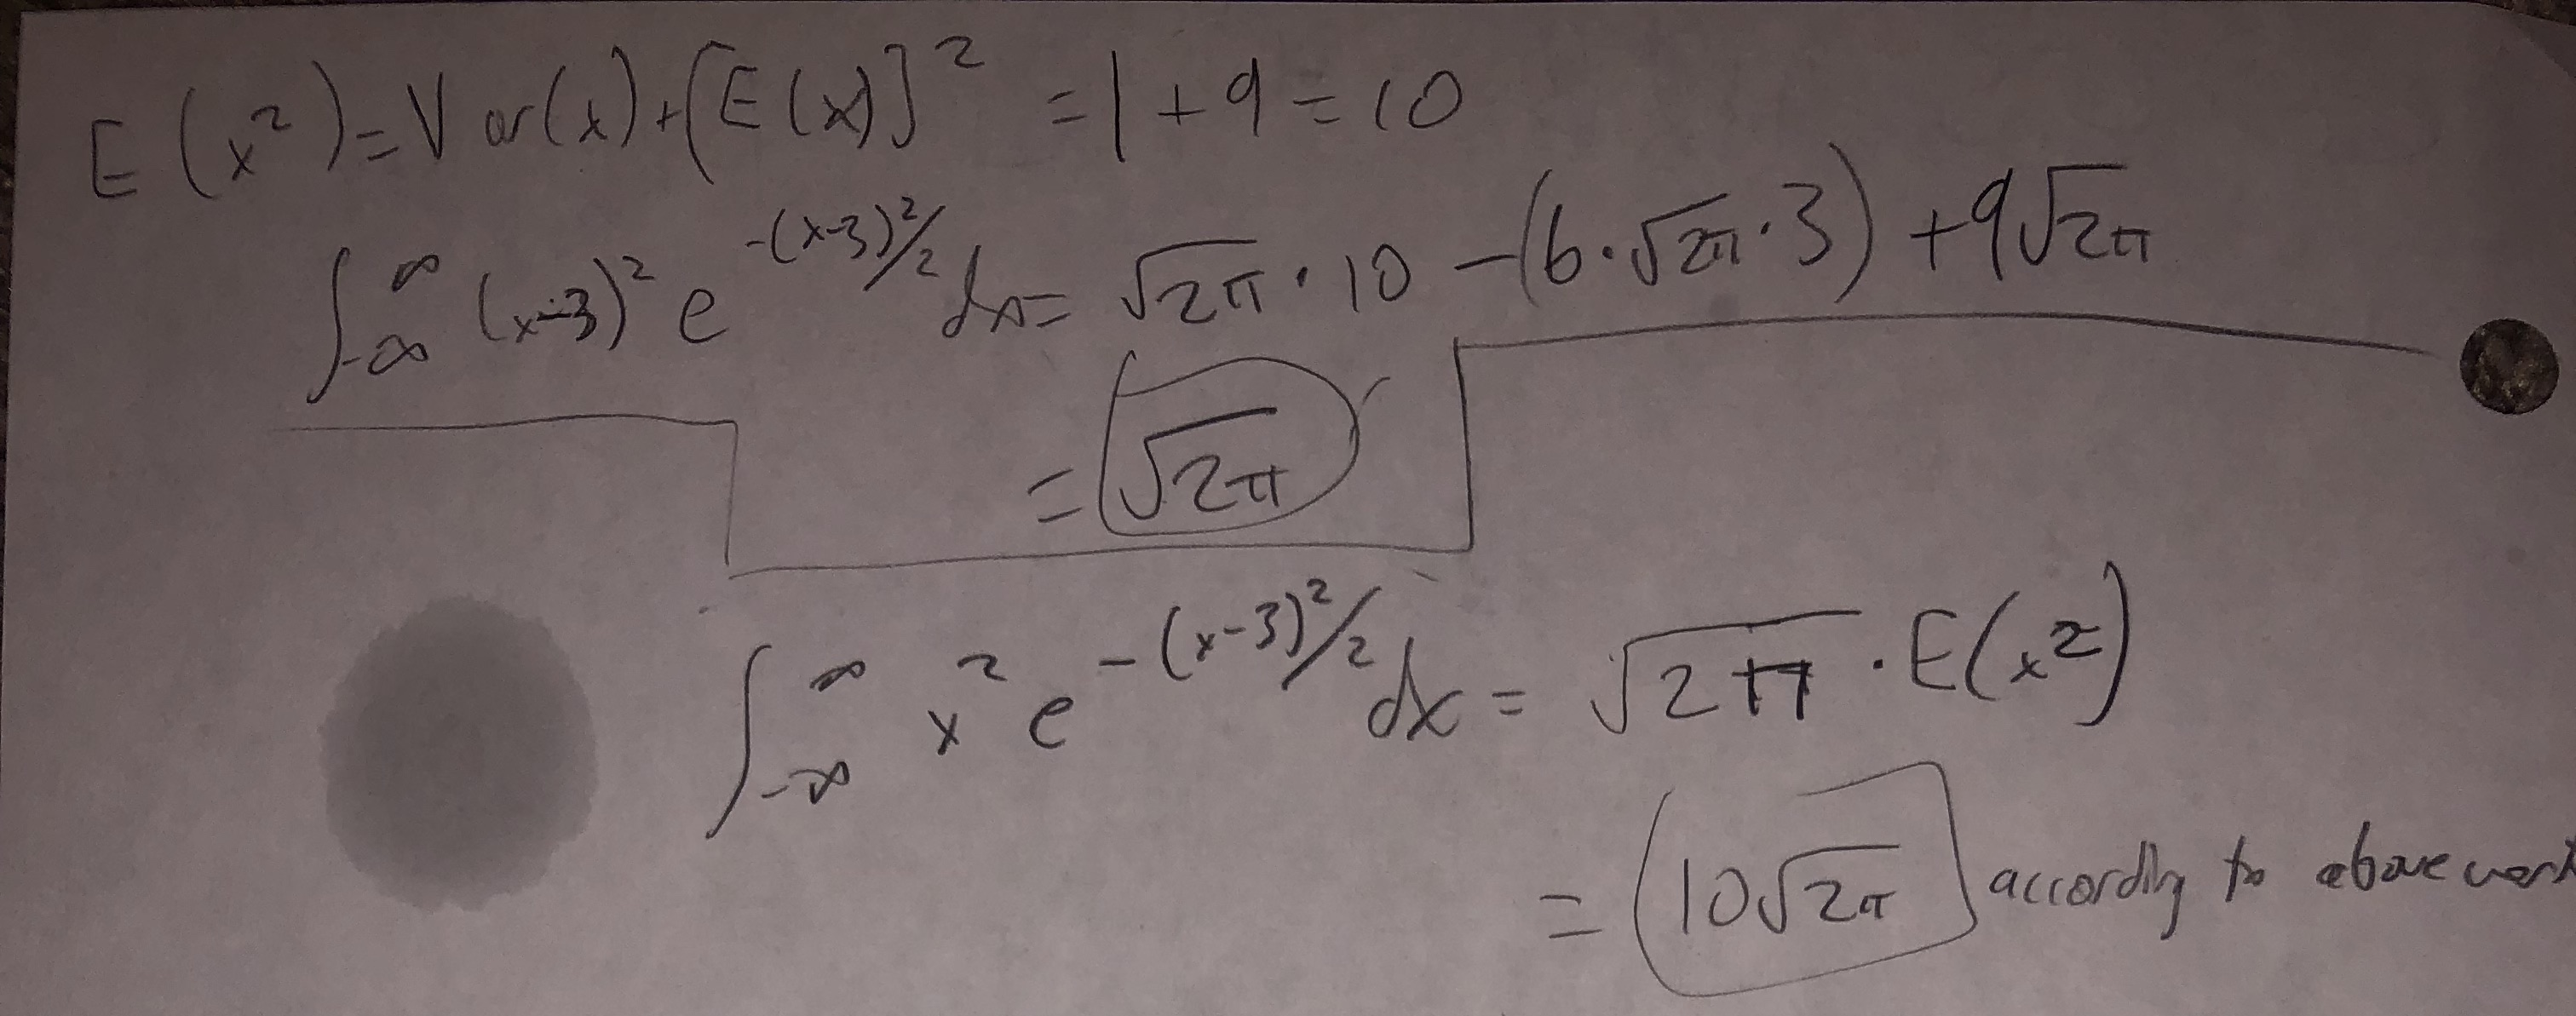 E(x²) = Var(x) + [E(x)]² = 1 + 9 = 10
∫_{-∞}^{∞} (x-3)² e^{-(x-3)²/2} dx = √2π · 10 - (6 · √2π · 3) + 9√2π
= √2π
∫_{-∞}^{∞} x² e^{-(x-3)²/2} dx = √2π · E(x²)
= 10√2π according to above work